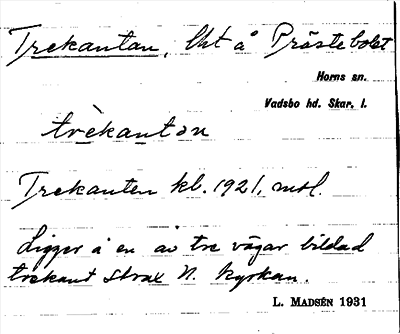 Trekantan, lht å Prästebolet
Horns sn.
Vadsbo hd. Skar. l.
trèkantan
Trekanten kl. 1921, mtl.
Ligger å en av tre vägar bildad
trekant strax N. kyrkan.
L. MADSÉN 1931